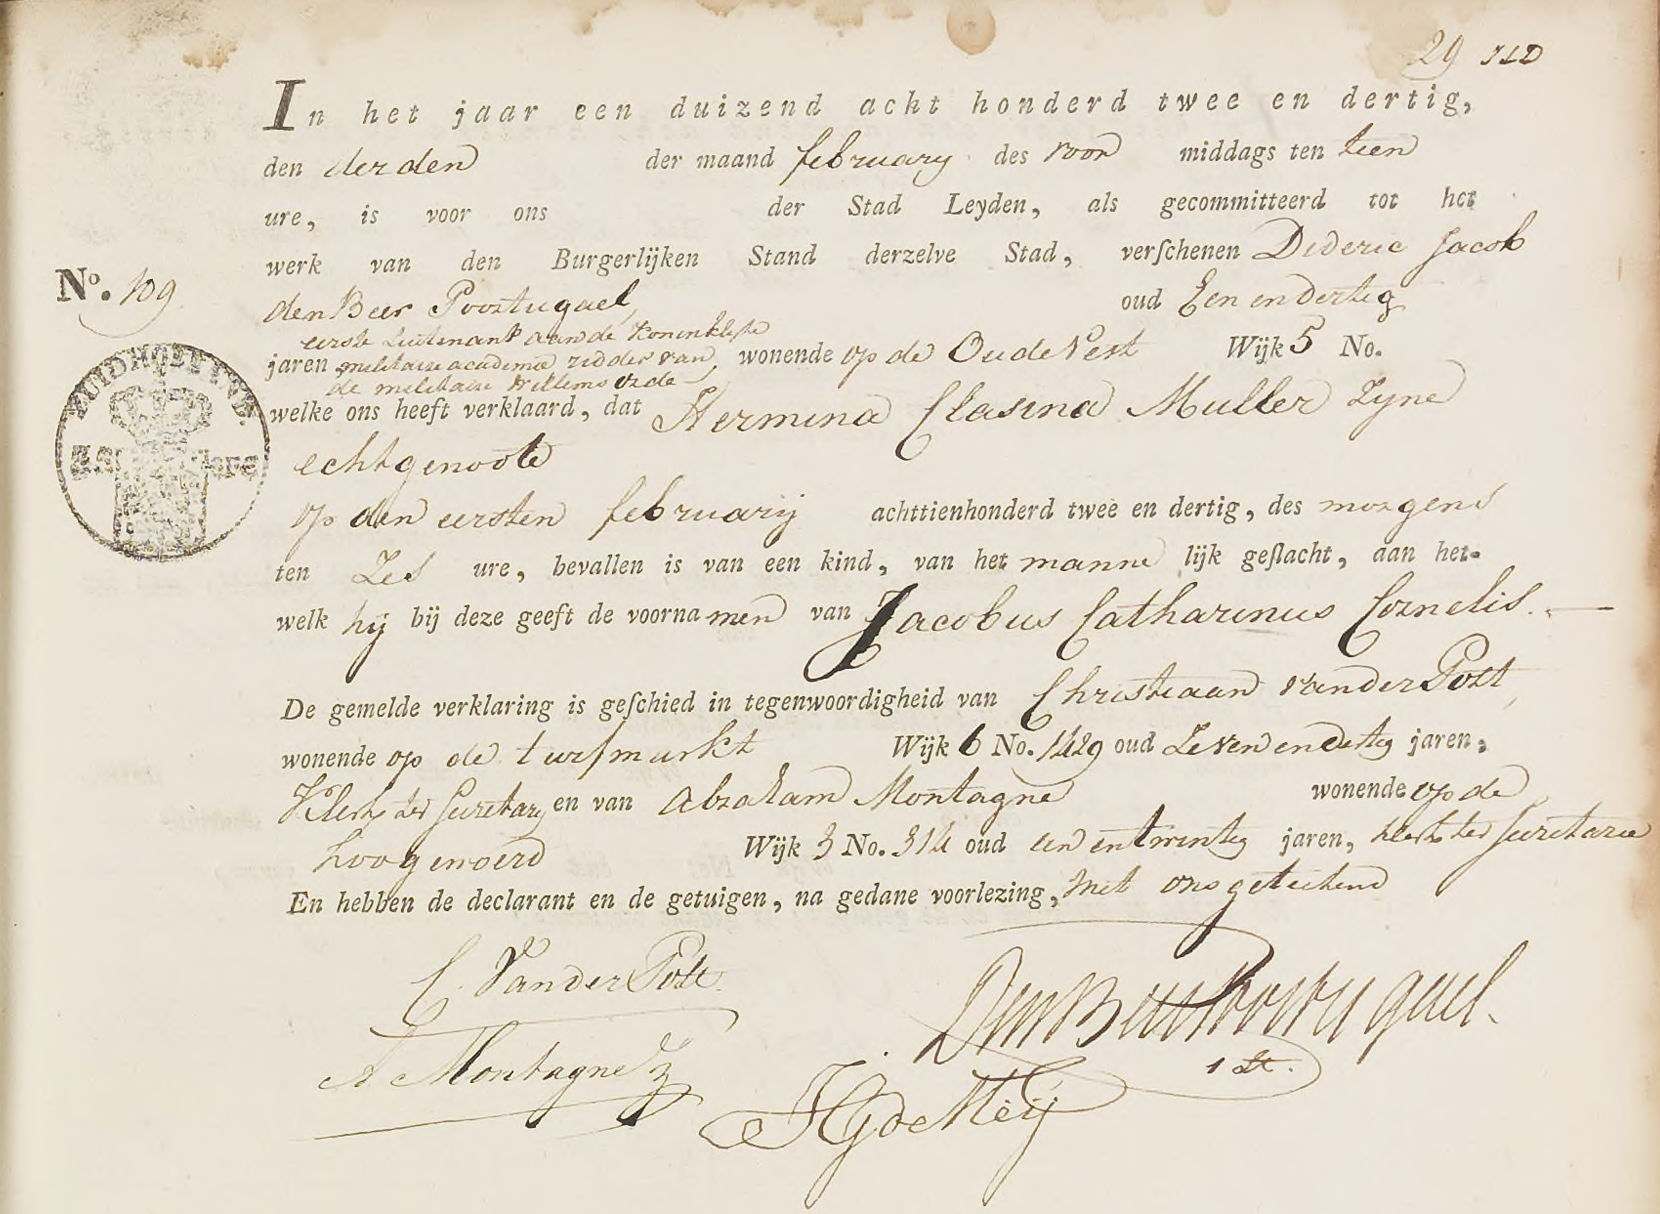 29
In het jaar een duizend acht honderd twee en dertig,
den derden der maand february des voor middags ten tien
ure, is voor ons der Stad Leyden, als gecommitteerd tot het
werk van den Burgerlijken Stand derzelve Stad, verschenen Dideric Jacob
No. 109
den Beer Poortugael, oud Een en dertig
eerste Luitenant aan de Koninklyke
jaren militaire academie ridder van wonende op de Oude Vest Wijk 5 No.
de militaire Willems orde
welke ons heeft verklaard, dat Hermina Clasina Muller Zyne
ZUIDHOLLAND
echtgenoote
op den eersten february achttienhonderd twee en dertig, des morgens
ten Zes ure, bevallen is van een kind, van het manne lijk geslacht, aan het-
welk hij bij deze geeft de voornamen van Jacobus Catharinus Cornelis.
De gemelde verklaring is geschied in tegenwoordigheid van Christiaan van der Post,
wonende op de turfmarkt Wijk 6 No. 1429 oud Zeven en dertig jaren,
Klerk ter Secretary en van Abraham Montagne wonende op de
hoogewoerd Wijk 3 No. 314 oud een en twintig jaren, klerk ter Secretarie
En hebben de declarant en de getuigen, na gedane voorlezing, met ons geteekend
C. Van der Post.
Den Beer Poortugael.
A Montagne
1 Lt.
de Meij